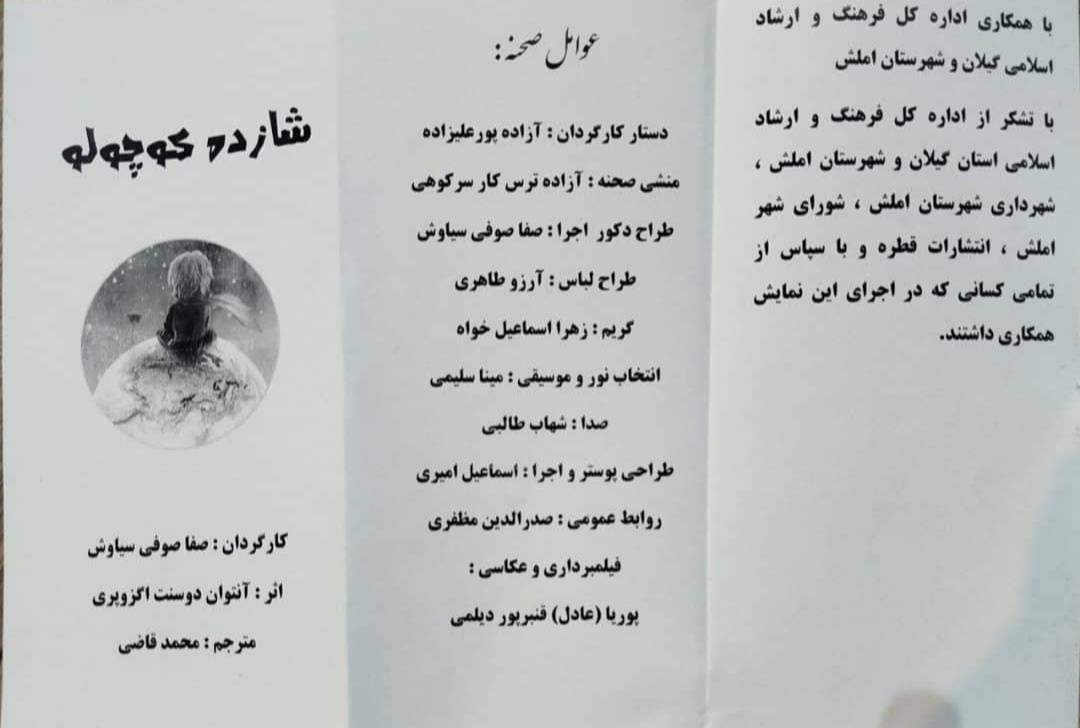 با همکاری اداره کل فرهنگ و ارشاد
اسلامی گیلان و شهرستان املش
با تشکر از اداره کل فرهنگ و ارشاد
اسلامی استان گیلان و شهرستان املش ،
شهرداری شهرستان املش ، شورای شهر
املش ، انتشارات قطره و با سپاس از
تمامی کسانی که در اجرای این نمایش
همکاری داشتند.
عوامل صحنه :
دستار کارگردان : آزاده پورعلیزاده
منشی صحنه : آزاده ترس کار سرکوهی
طراح دکور اجرا : صفا صوفی سیاوش
طراح لباس : آرزو طاهری
گریم : زهرا اسماعیل خواه
انتخاب نور و موسیقی : مینا سلیمی
صدا : شهاب طالبی
طراحی پوستر و اجرا : اسماعیل امیری
روابط عمومی : صدرالدین مظفری
فیلمبرداری و عکاسی :
پوریا (عادل) قنبرپور دیلمی
شازده کوچولو
کارگردان : صفا صوفی سیاوش
اثر : آنتوان دوسنت اگزوپری
مترجم : محمد قاضی